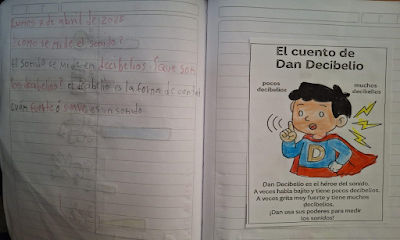 Lunes 7 de abril de 2025
¿como se mide el sonido?
El sonido se mide en decibelios. ¿Que son
los decibelios? el decibelio es la forma de
cuan fuerte o suave es un sonido
El cuento de
Dan Decibelio
pocos
decibelios
muchos
decibelios
D
Dan Decibelio es el héroe del sonido.
A veces habla bajito y tiene pocos decibelios.
A veces grita muy fuerte y tiene muchos
decibelios.
¡Dan usa sus poderes para medir
los sonidos!